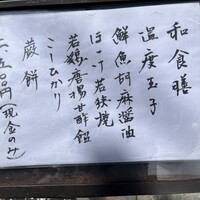 和食膳
温度玉子
鮮魚胡麻醤油
ほっけ若狭焼
若鶏唐揚甘酢餡
こしひかり
蕨餅
二、五〇〇円(現金のみ)